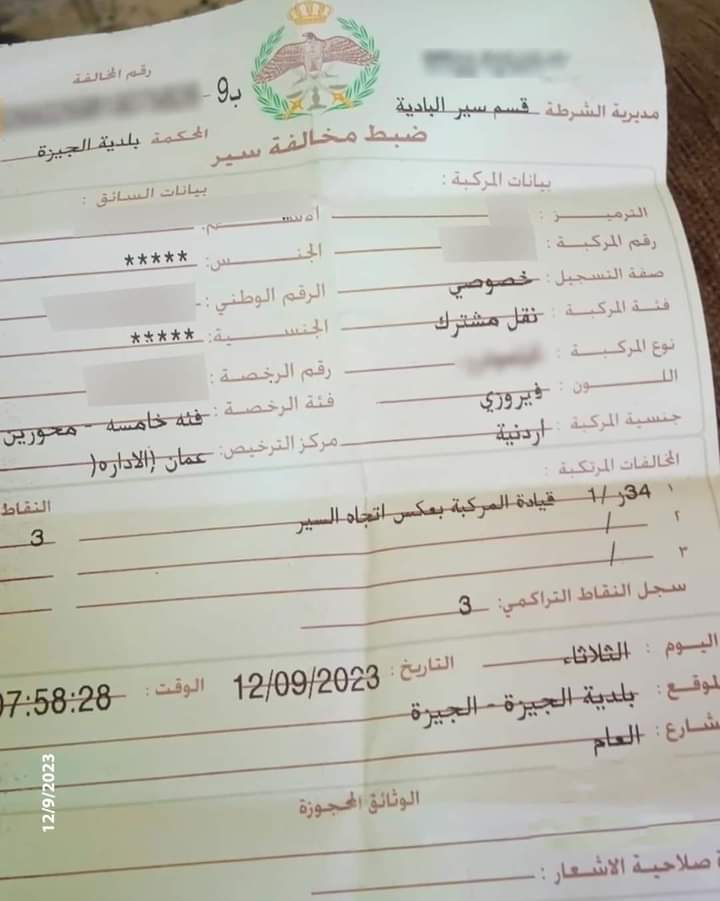 رقم المخالفة
ب9 -
مديرية الشرطة قسم سير البادية
المحكمة بلدية الجيزة
ضبط مخالفة سير
بيانات المركبة :
بيانات السائق :
الترميـــــز :
رقم المركبة :
الجنـــــس: *****
صفة التسجيل : خصوصي
الرقم الوطني :
فئة المركبة : نقل مشترك
الجنسيـــــة: *****
نوع المركبة :
رقم الرخصة :
اللـــــون : فيروزي
فئة الرخصة : فئه خامسه - محورين
جنسية المركبة : اردنية
مركز الترخيص: عمان (الاداره(
المخالفات المرتكبة :
النقاط
١ 34ز /1 قيادة المركبة بعكس اتجاه السير 3
٢ /
٣ /
سجل النقاط التراكمي: 3
اليـــوم : الثلاثاء التاريخ : 12/09/2023 الوقت : 07:58:28
لموقع: بلدية الجيزة - الجيزة
شارع: العام
الوثائق المحجوزة
ة صلاحية الاشعار :
12/9/2023